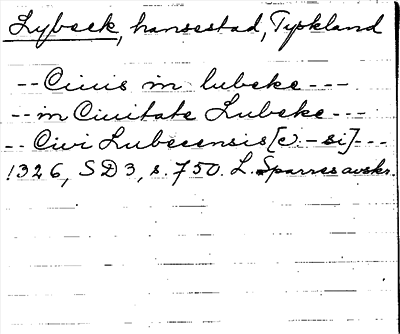 Lybeck, hansestad, Tyskland
--Ciuis in lubeke---
--in Ciuitate Lubeke---
--Civi Lubecensis [v.-si]---
1326, SD3, s. 750. L. Sparres avskr.